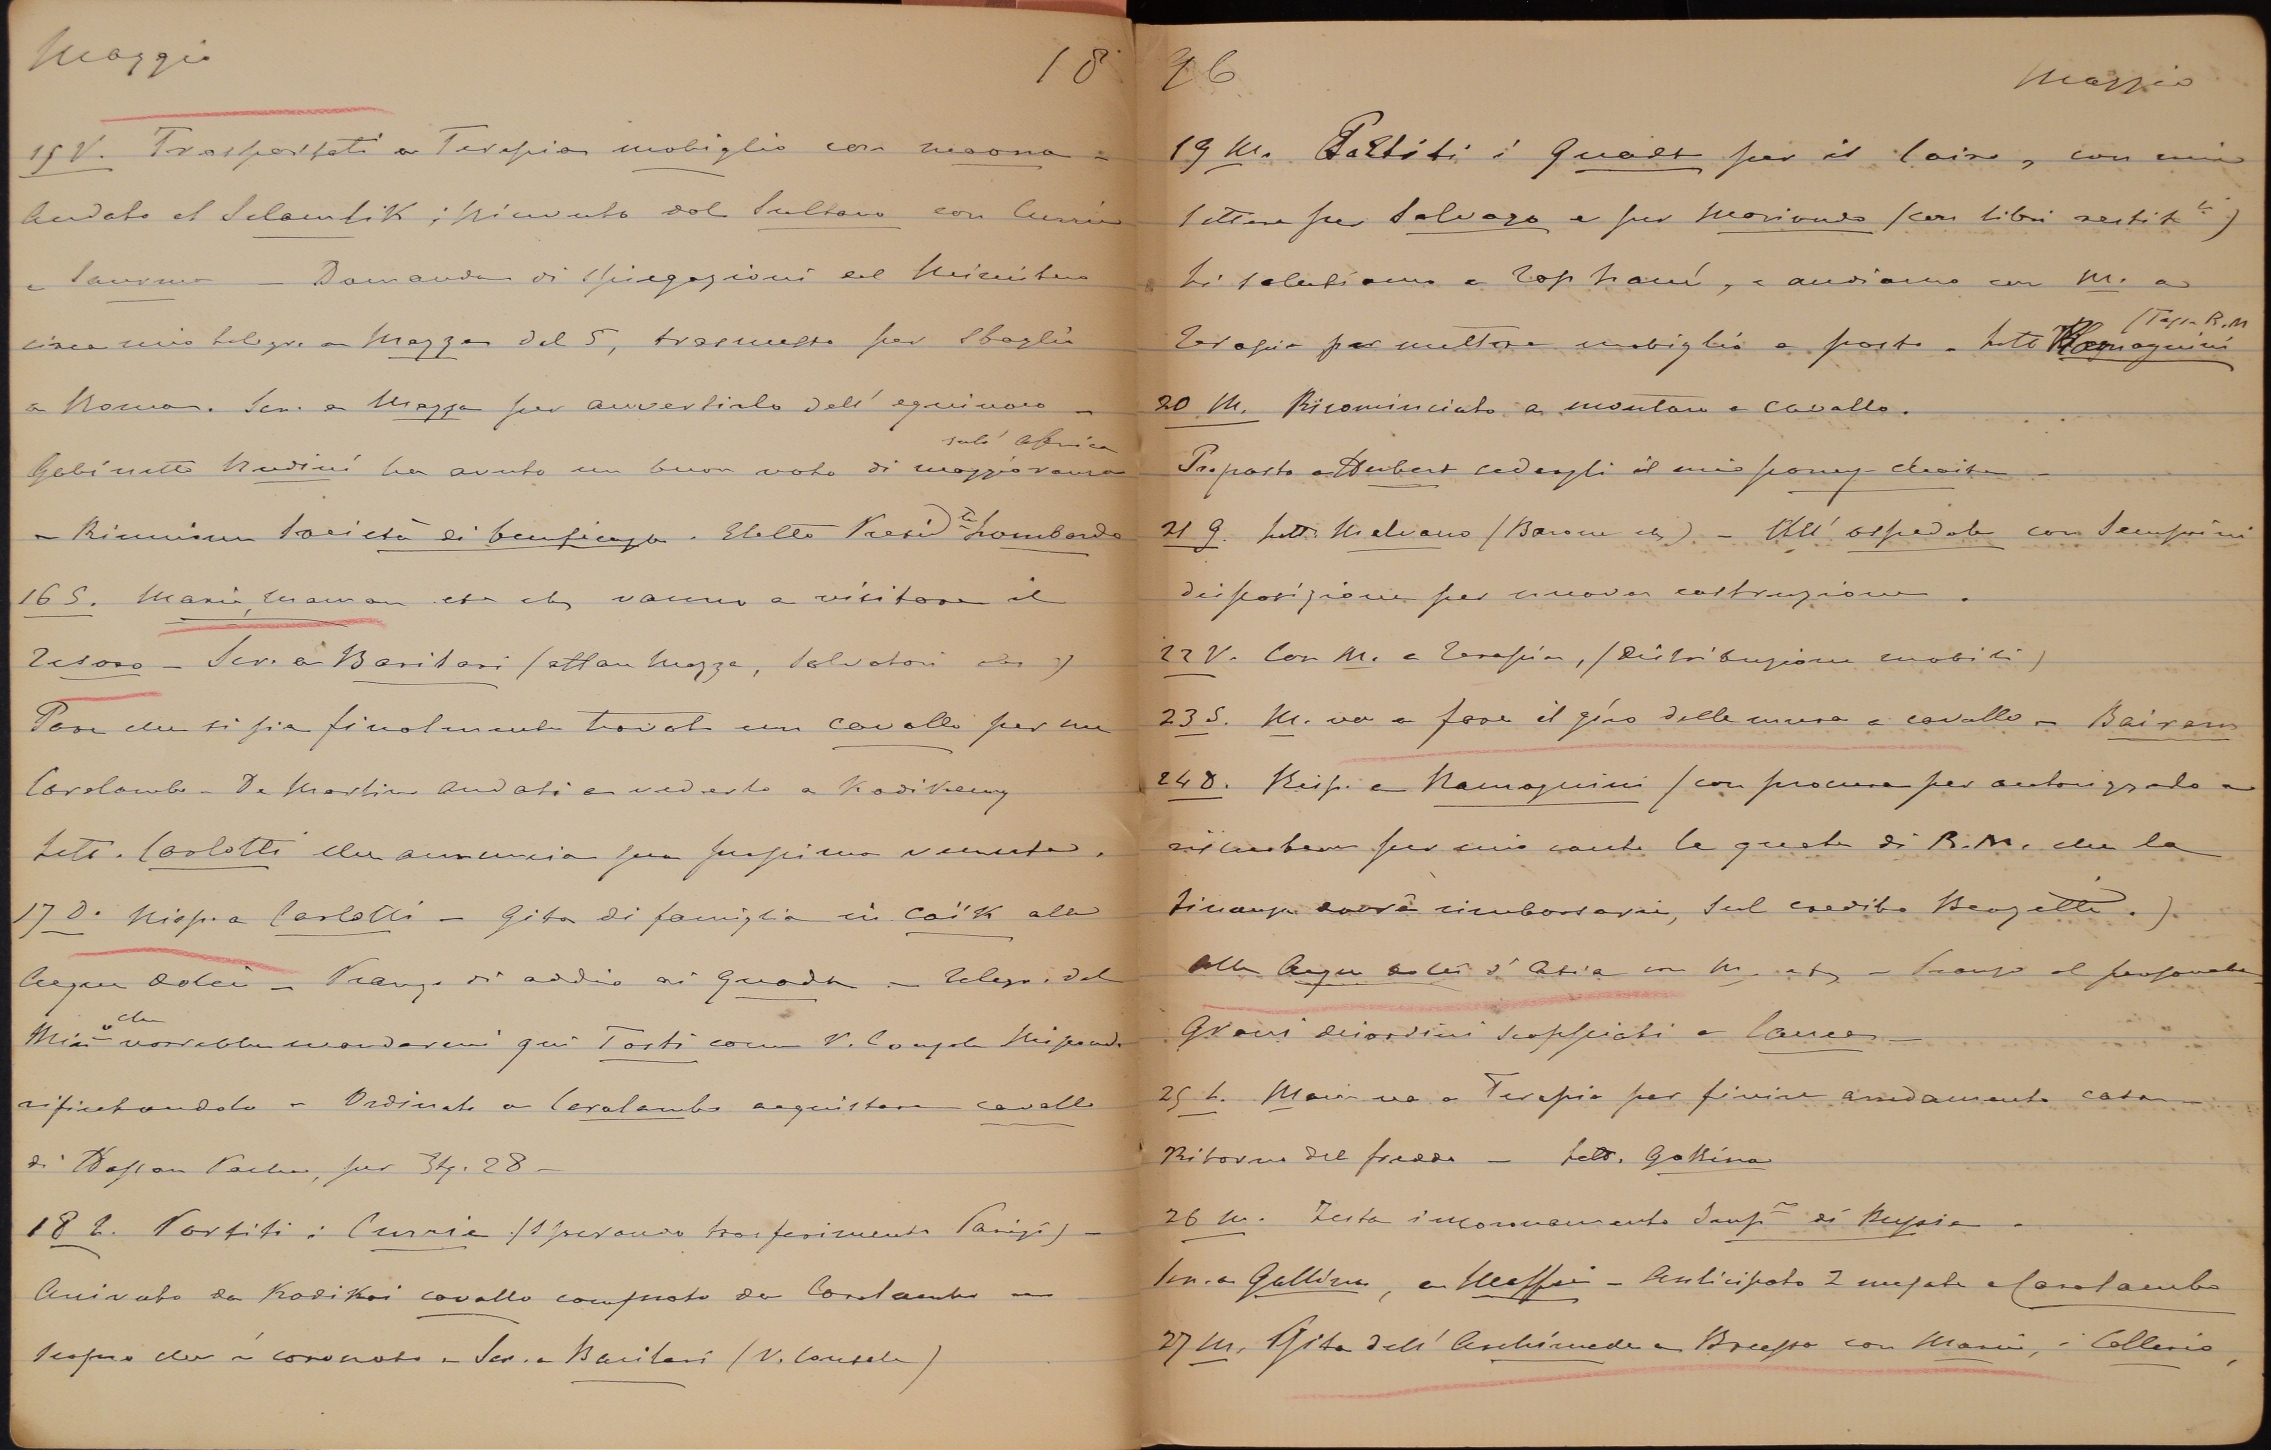 Maggio 18
15 V. Trasportati a Terapia mobiglio con maona -
Andato al Selamlik; ricevuto dal Sultano con Currie
e Saurma - Domanda di spiegazioni del Ministero
circa mio telegr. a Mazza del 5, trasmesso per sbaglio
a Roma. Scr. a Mazza per avvertirlo dell' equivoco -
sull' Africa
Gabinetto Rudinì ha avuto un buon voto di maggioranza
- Riunione Società di beneficenza. Eletto Presid.te Lombardo
16 S. Marie, Maman etc etc vanno a visitare il
Tesoro - Scr. a Baritari (affari Mazza, Salvatori etc)
Pare che si sia finalmente trovato un cavallo per me
Caralambo - De Martino andati a vederlo a Kadikeuy
Lett. Carlotti che annuncia sua prossima venuta.
17 D. Risp. a Carlotti - Gita di famiglia in Caïk alle
Acque dolci - Pranzo di addio ai Quadt - Telegr. del
che
Min.o vorrebbe mandarmi qui Torti come V. Console Rispondo
rifiutandolo - Ordinato a Caralambo acquistare cavallo
di Hassan Pacha, per Ltq. 28 -
18 L. Partiti i Currie (sperando trasferimento Parigi) -
Arrivato da Kadikoi cavallo comprato da Caralambo -
scopro che è coronato - Scr. a Baritari (V. Console)
96 Maggio
19 M. Partiti i Quadt per il Cairo, con mia
lettera per Salvago e per Moriondo (con libri restit.ti)
Li salutiamo a Top hané, e andiamo con M. a
(Tassa R.M
Terapia per mettere mobiglio a posto - Lett. Romagnini
20 M. Ricominciato a montare a cavallo.
Proposto a Herbert cedergli il mio poney-chaise -
21 G. Lett. Malvano (Barone etc) - All' ospedale con Semprini
disposizione per nuova costruzione.
22 V. Con M. a Terapia, (distribuzione mobili)
23 S. M. va a fare il giro delle mura a cavallo - Bairam
24 D. Risp. a Ramagnini (con procura per autorizzarlo a
riscuotere per mio conto le quote di R.M. che la
Finanza dovrà rimborsarmi, sul credito Benzetti.)
alle Acque dolci d'Asia con M. etc - Pranzo al personale
Gravi disordini scoppiati a Canea -
25 L. Marie va a Terapia per finire arredamento casa -
Ritorno del freddo - Lett. Gallina
26 M. Festa incoronamento Imp.re di Russia -
Scr. a Gallina, a Maffei - Anticipato 2 mesate a Caralambo
27 M. Gita dell' Archimede a Brussa con Marie, i Collerio,